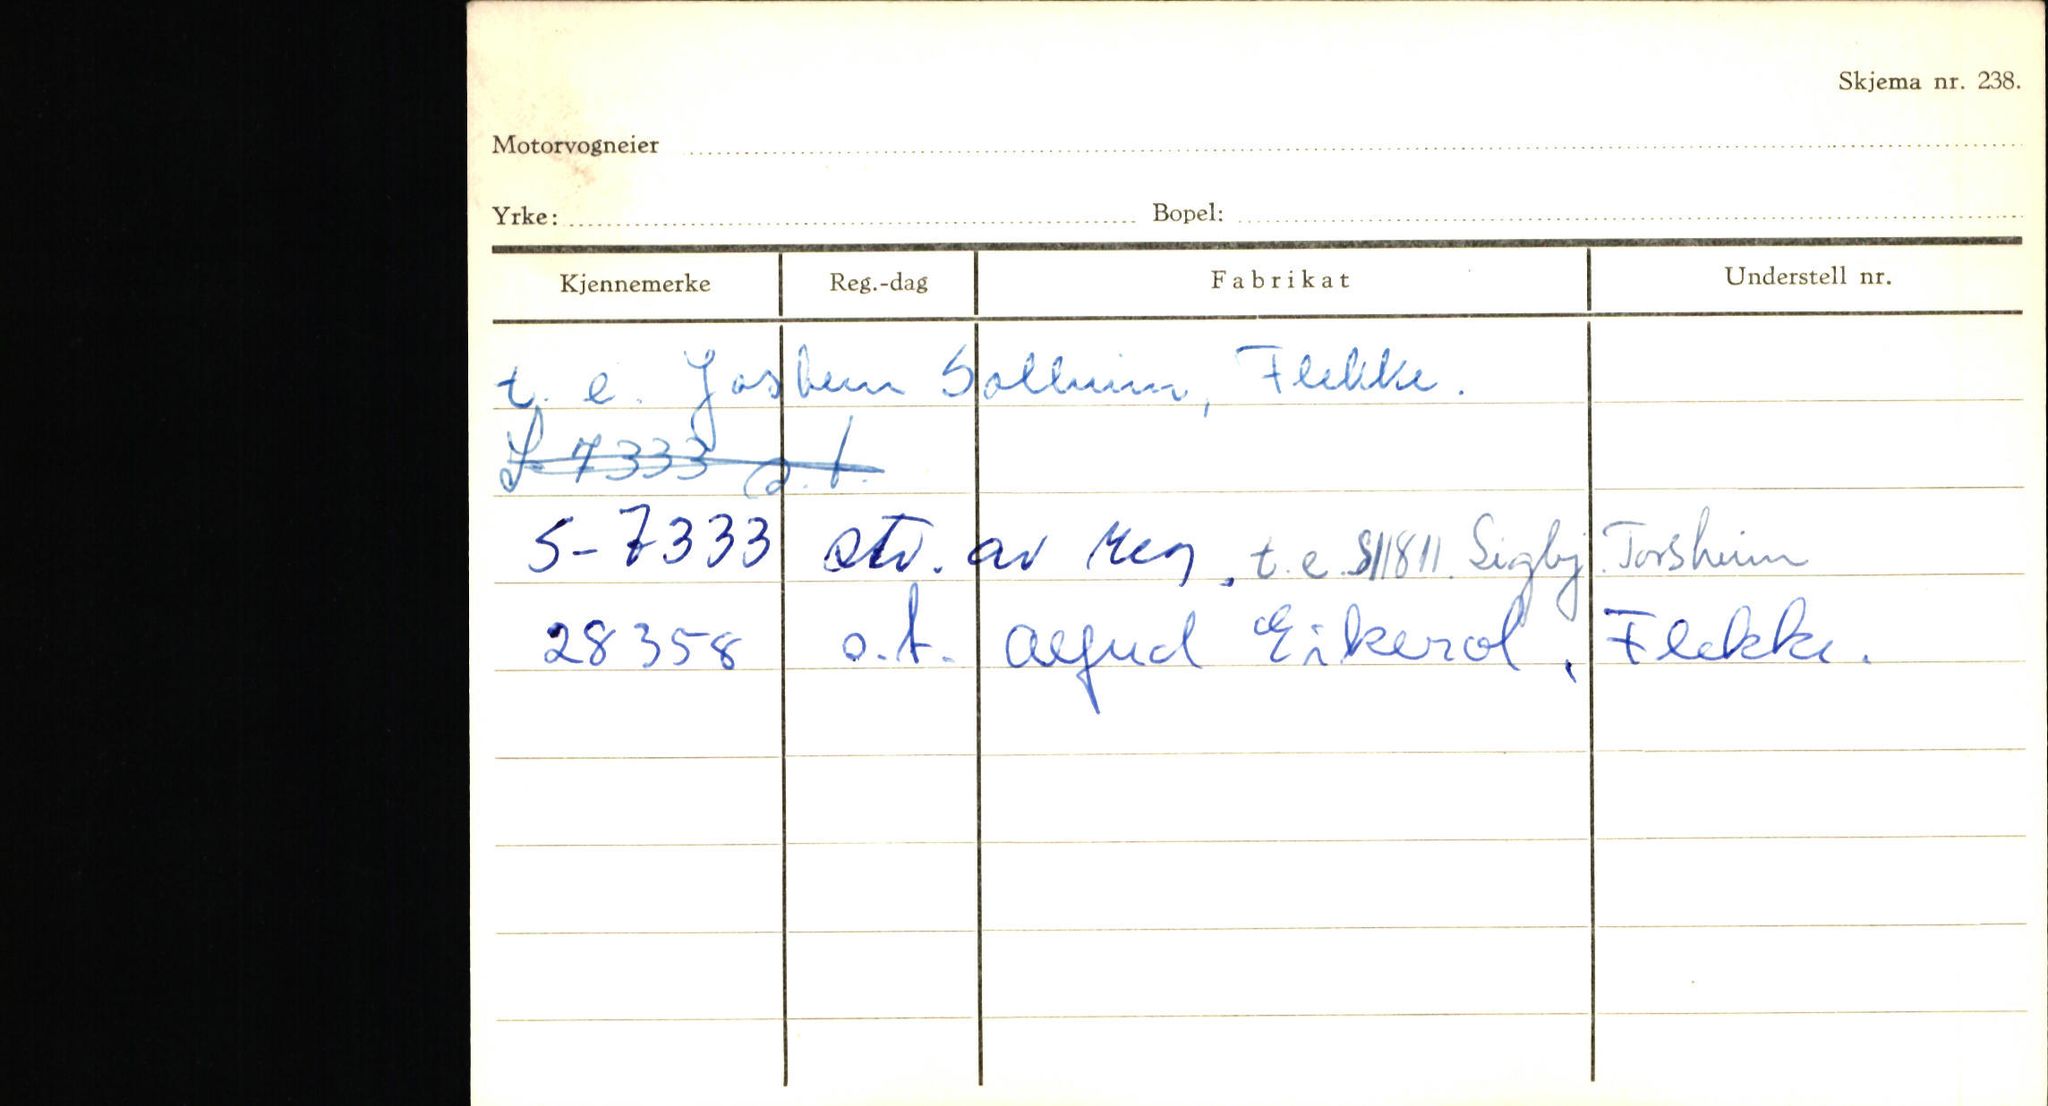 Skjema nr. 238.
Motorvogneier
Yrke: Bopel:
Kjennemerke Reg.-dag Fabrikat Understell nr.
t. e. Solheim, Flekke.
S-7333 o.t.
S-7333 str. av reg. t.e. S11811. Sigbj. Torsheim
28358 o.t. Eikerol, Flekke.